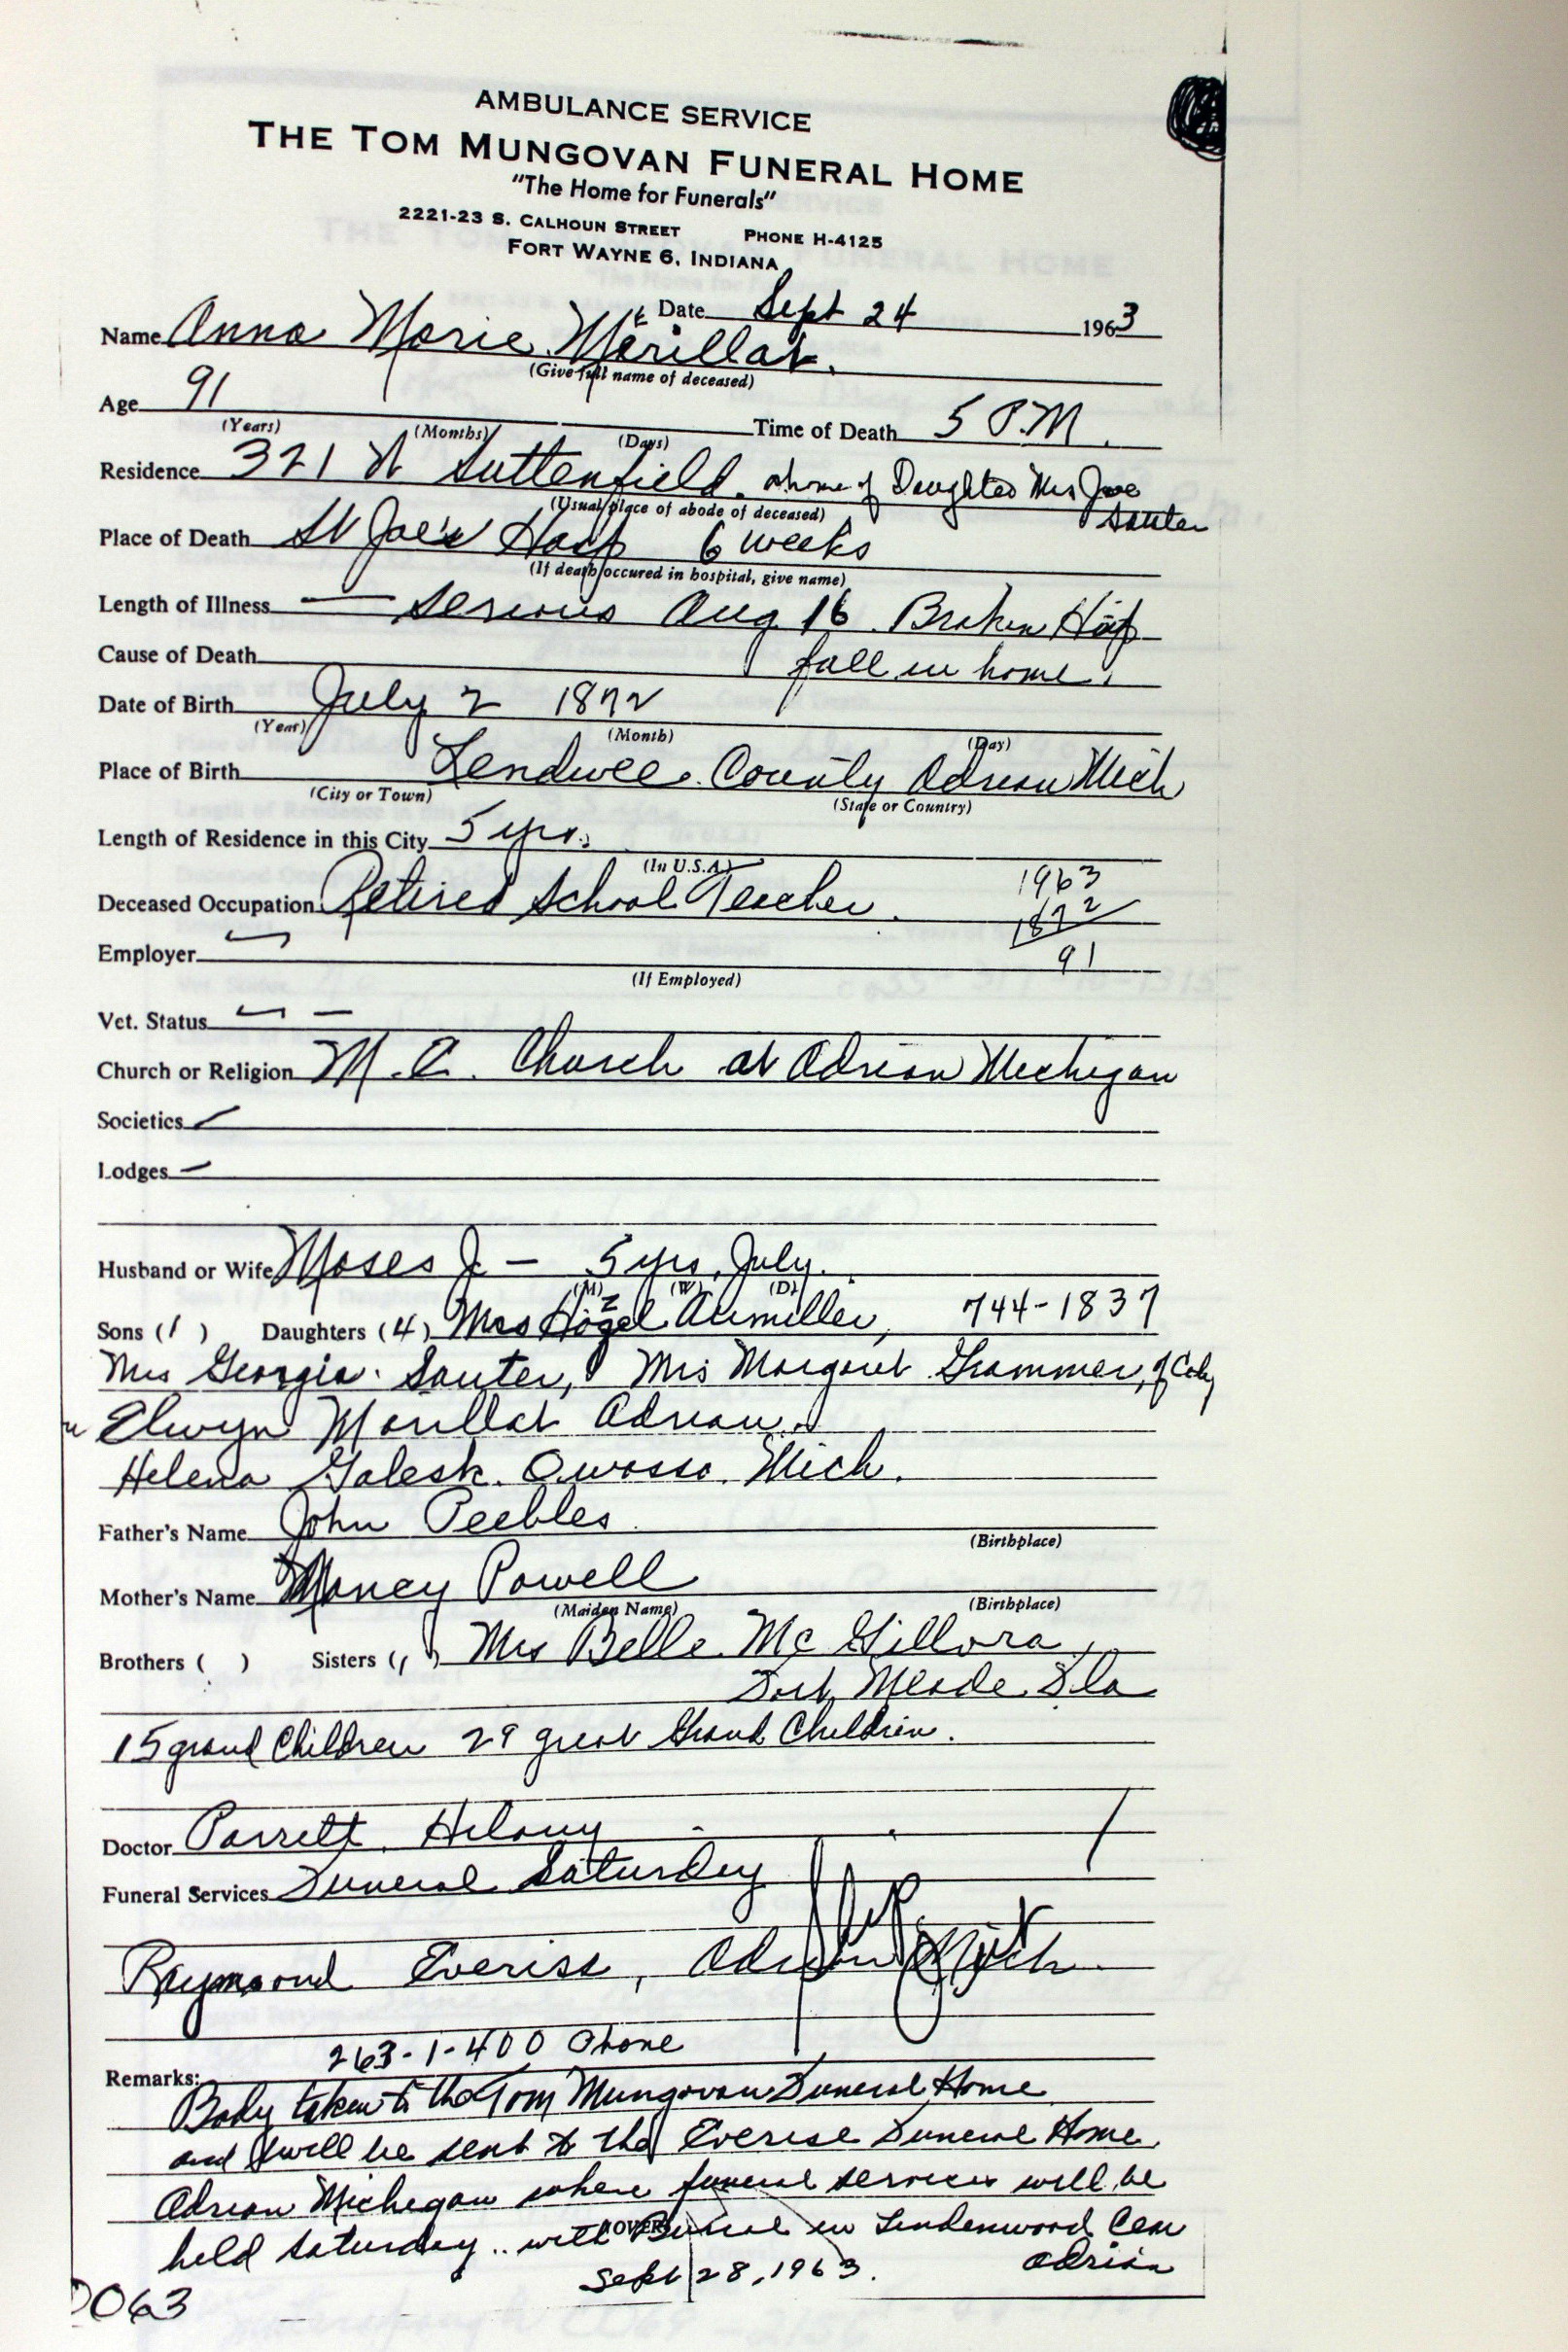 AMBULANCE SERVICE
THE TOM MUNGOVAN FUNERAL HOME
"The Home for Funerals"
2221-23 S. CALHOUN STREET PHONE H-4125
FORT WAYNE 6, INDIANA
Date Sept 24 1963
Name Anna Marie Merillat.
(Give full name of deceased)
Age 91 Time of Death 5 P.M.
(Years) (Months) (Days)
Residence 321 W Suttenfield. home of Daughter Mrs Joe
Sauter
(Usual place of abode of deceased)
Place of Death St Joe's Hosp 6 weeks
(If death occured in hospital, give name)
Length of Illness — serious Aug 16 Broken Hip
Cause of Death fall in home.
Date of Birth July 2 1872
(Year) (Month) (Day)
Place of Birth Lendwee County Adrian Mich
(City or Town) (State or Country)
Length of Residence in this City 5 yrs.
(In U.S.A.)
1963
Deceased Occupation Retired School Teacher. 1872
Employer 91
(If Employed)
Vet. Status —
Church or Religion M.E. Church at Adrian Michigan
Societies
Lodges —
Husband or Wife Moses J — 5 yrs, July.
(M) (W) (D)
Sons (1) Daughters (4) Mrs Hazel Aumiller, 744-1837
Mrs Georgia Sauter, Mrs Margaret Grammer, of City
Elwyn Merillat Adrian.
Helena Galesk. Owosso. Mich.
Father's Name John Peebles
(Birthplace)
Mother's Name Nancy Powell
(Maiden Name) (Birthplace)
Brothers ( ) Sisters (1) Mrs Belle Mc Gillvra,
Fort Meade Fla
15 grand Children 29 great Grand Children.
Doctor Parrett, Hilary
Funeral Services Funeral Saturday
Raymond Everise, Adrian Mich.
263-1-400 Phone
Remarks:
Body taken to the Tom Mungovan Funeral Home
and will be sent to the Everise Funeral Home,
Adrian Michigan where funeral services will be
held Saturday.. with Burial in Lindenwood Cem
(OVER)
Adrian
Sept 28, 1963.
063